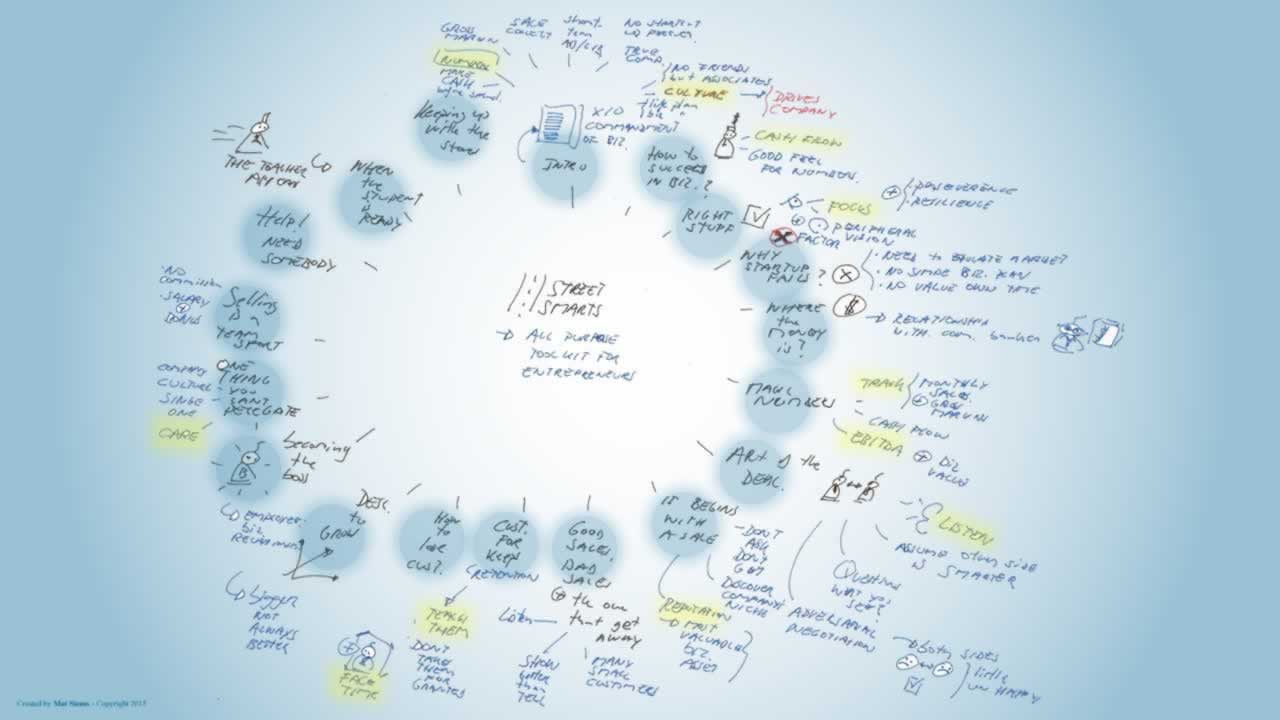 STREET
SMARTS
ALL PURPOSE
TOOLKIT FOR
ENTREPRENEURS
INTRO
X10
COMMANDMENT
OF BIZ.
GROSS
MARGIN
NUMBER
MAKE
CASH
SALE
NO FRIENDS
but ASSOCIATES
CULTURE
life plan
DRIVES
COMPANY
HOW to
SUCCEED
IN BIZ.?
CASH FROW
GOOD FEEL
FOR NUMBERS.
RIGHT
STUFF
FOCUS
PERSEVERENCE
RESILIENCE
PERIPHERAL
VISION
FACTOR
WHY
STARTUP
FAILS?
NEED to EDUCATE MARKET
NO VALUE OWN TIME
WHERE
the
MONEY
is?
RELATIONSHIP
WITH com. banker
MAGIC
NUMBERS
TRACK
MONTHLY
SALES
GROSS
MARGIN
CASH FLOW
EBITDA
BIZ
VALUE
ART of the
DEAL.
LISTEN
ASSUME other side
IS SMARTER
QUESTION
WHAT YOU
SEE?
ADVERSARIAL
NEGOTIATION
both SIDES
little
UNHAPPY
IT BEGINS
WITH
A SALE
DON'T
ASK
DON'T
GET
DISCOVER
COMPANY
NICHE
REPUTATION
MOST
VALUABLE
biz.
ASSET
GOOD
SALES.
BAD
SALES
the one
that get
away
Listen
SHOW
better
than
TELL
MANY
SMALL
CUSTOMERS
CUST.
FOR
KEEPS
RETENTION
TEACH
THEM
DON'T
TAKE
THEM
FOR
GRANTED
How
to
lose
CUST.
FACE
TIME
to
GROW
bigger
NOT
ALWAYS
BETTER
becoming
the
boss
B
EMPLOYER
biz
ONE
THING
YOU
CANT
DELEGATE
COMPANY
CULTURE
ONE
CARE
Selling
IS A
TEAM
SPORT
NO
Commission
SALARY
BONUS
Help!
NEED
SOMEBODY
WHEN
the
STUDENT
READY
THE TEACHER
Keeping up
with the
Created by Mat Simms - Copyright 2015